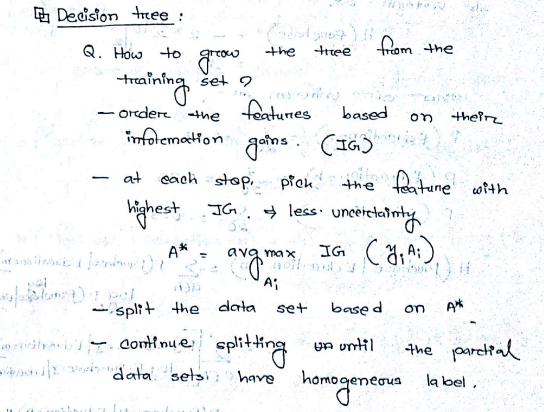 Decision tree :
Q. How to grow the tree from the
training set ?
- order the features based on their
information gains. (IG)
- at each step, pick the feature with
highest IG. → less uncertainty
A* = arg max IG (y, Ai)
Ai
- split the data set based on A*
- continue splitting until the partial
data sets have homogeneous label.